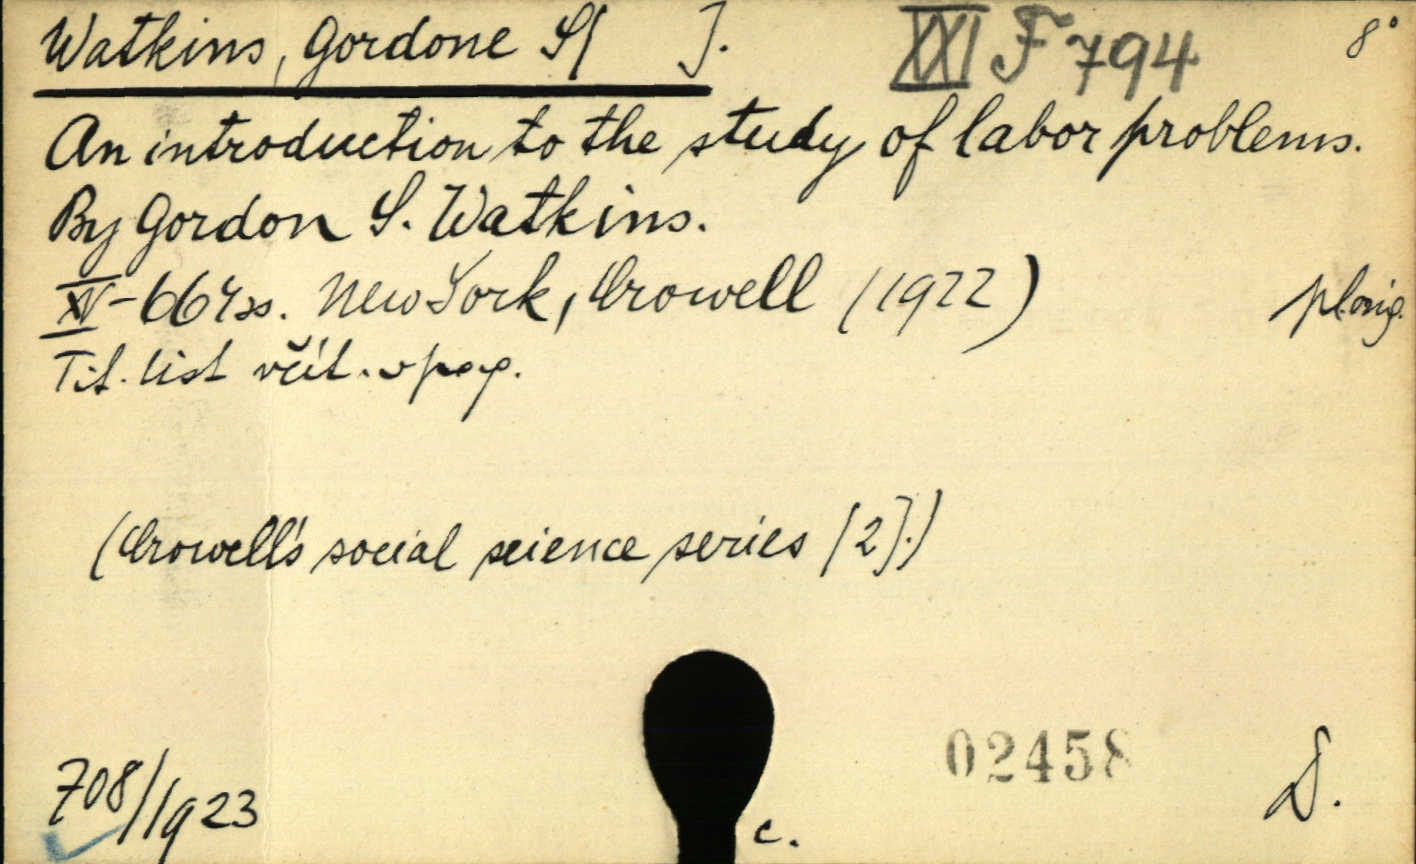 Watkins, Gordone S[ ]. XXI F 794 8°
An introduction to the study of labor problems.
By Gordon S. Watkins.
XV-664 ss. New York, Crowell (1922) pl. orig.
Tit. list včít. v pag.
(Crowell's social science series [2].)
02458
708/1923
c.
D.